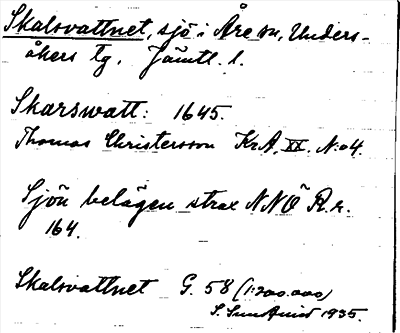 Skalsvattnet, sjö i Åre sn, Unders-
åkers tg, Jämtl. l.
Skarswatt: 1645.
Thomas Christersson Kr.A. XX. N:o4.
Sjön belägen strax NNÖ R.r.
164.
Skalsvattnet G. 58 (1:200.000)
S. Sundquist 1935.